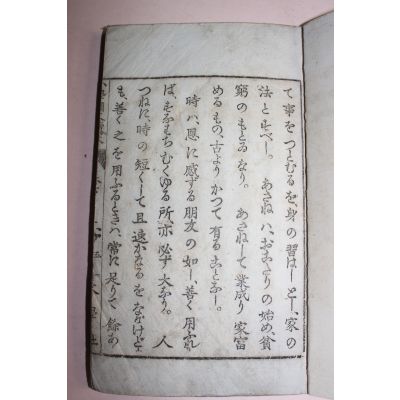 て事をつとむるを、身の習はしとし、家の
法とすべし。あさねハ、おこたりの始め、貧
窮のもとゐなり。あさねして業成り家富
めるもの、古よりかつて有ることなし。
時ハ、恩に感ずる朋友の如し、善く用ふれ
ば、すなはちむくゆる所、亦必ず大なり。人
つねに、時の短くして且速かなるをなげけども、
も、善く之を用ふるときハ、常に足りて餘あ